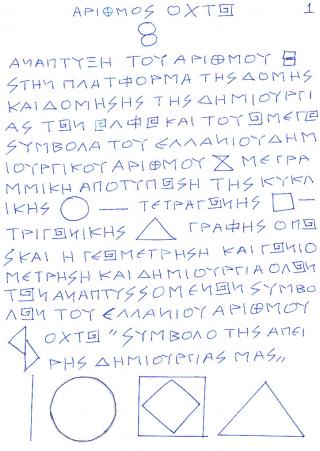 ΑΡΙΘΜΟΣ ΟΧΤΩ 1
8
ΑΝΑΠΤΥΞΗ ΤΟΥ ΑΡΙΘΜΟΥ 8
ΣΤΗΝ ΠΛΑΤΦΟΡΜΑ ΤΗΣ ΔΟΜΗΣ
ΚΑΙ ΔΟΜΗΣΗΣ ΤΗΣ ΔΗΜΙΟΥΡΓΙ
ΑΣ ΤΩΝ ΚΑΙ ΤΟΥ
ΣΥΜΒΟΛΑ ΤΟΥ ΕΛΛΑΝΙΟΥ ΔΗΜ
ΙΟΥΡΓΙΚΟΥ ΑΡΙΘΜΟΥ ΜΕ ΓΡΑ
ΜΜΙΚΗ ΑΠΟΤΥΠΩΣΗ ΤΗΣ ΚΥΚΛ
ΙΚΗΣ — ΤΕΤΡΑΓΩΝΗΣ —
ΤΡΙΓΩΝΙΚΗΣ ΓΡΑΦΗΣ ΟΠΩ
Σ ΚΑΙ Η ΓΕΩΜΕΤΡΗΣΗ ΚΑΙ ΓΩΝΙΟ
ΜΕΤΡΗΣΗ ΚΑΙ ΔΗΜΙΟΥΡΓΙΑ ΟΛΩΝ
ΤΩΝ ΑΝΑΠΤΥΣΣΟΜΕΝΩΝ ΣΥΜΒΟ
ΛΩΝ ΤΟΥ ΕΛΛΑΝΙΟΥ ΑΡΙΘΜΟΥ
ΟΧΤΩ "ΣΥΜΒΟΛΟ ΤΗΣ ΑΠΕΙ
ΡΗΣ ΔΗΜΙΟΥΡΓΙΑΣ ΜΑΣ„